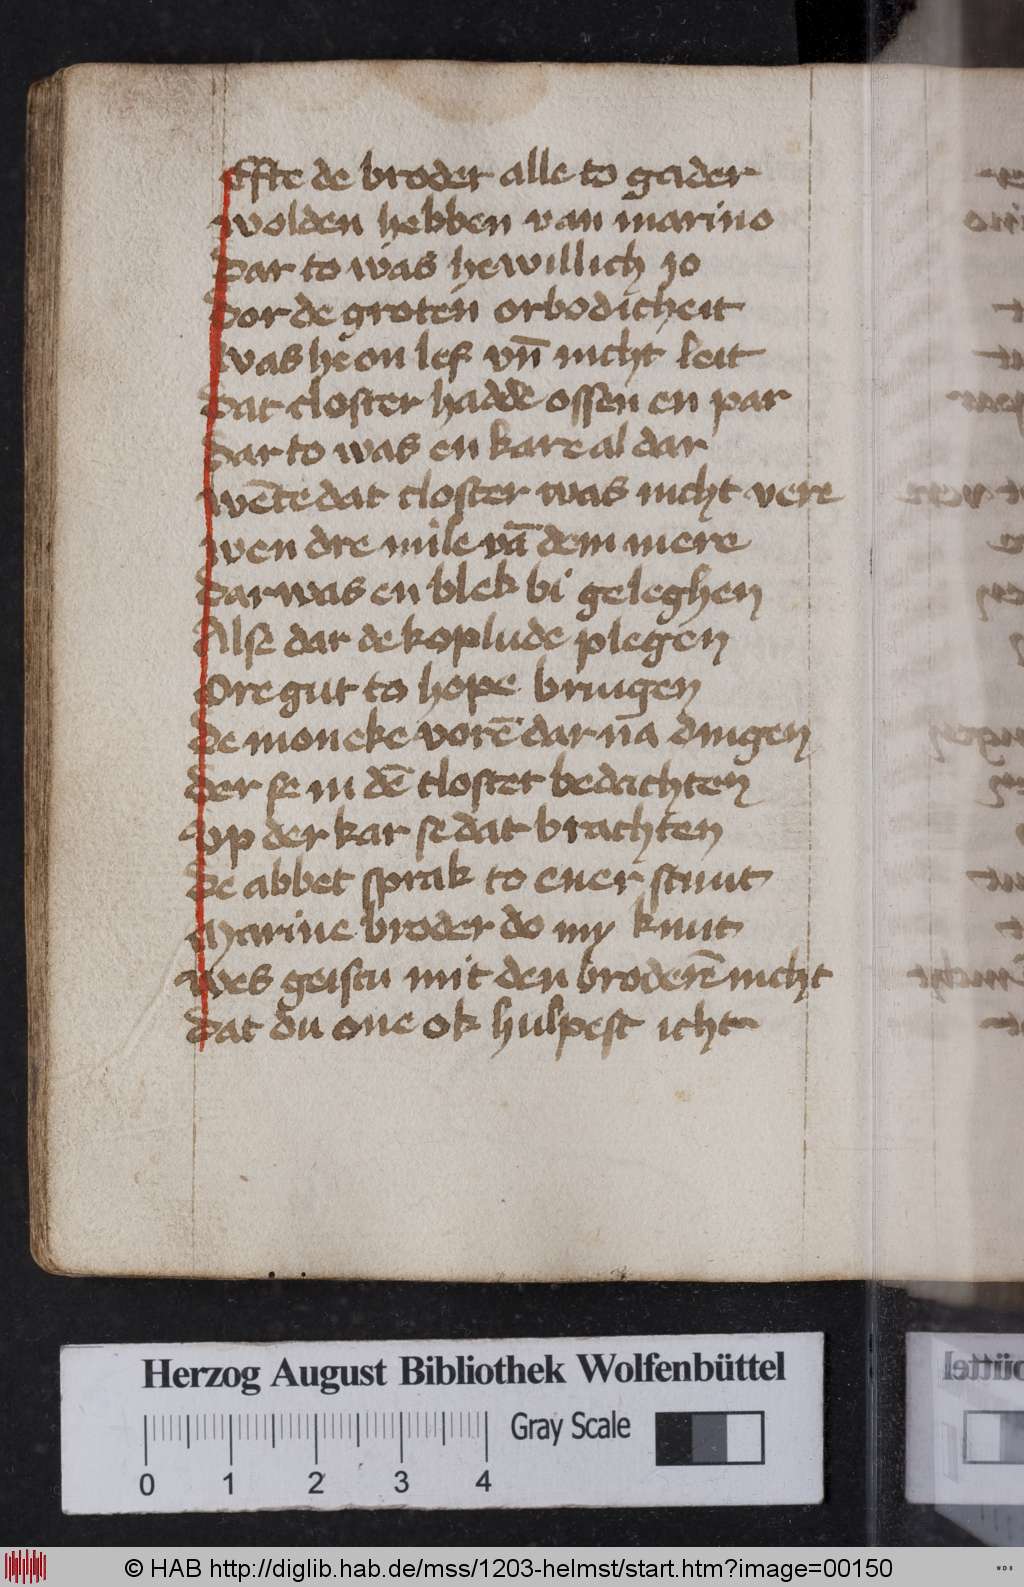 Effte de broder alle to gader
wolden hebben van marino
Dar to was he willich jo
Dor de groten orbodicheit
was he on lef vn̄ nicht leit
Dat closter hadde ossen en par
Dar to was en kare al dar
wēte dat closter was nicht vere
wen dre mile vā dem mere
Dar was en blek bi geleghen
Alse dar de koplude plegen
Ore gut to hope bringen
De moneke vorē dar nā dingen
der se in dē closter bedachten
Up der kar se dat brachten
De abbet sprak to ener stunt
Marine broder do my kunt
wes geistu mit den broderē nicht
Dat du one ok hulpest icht
Herzog August Bibliothek Wolfenbüttel
Gray Scale
0 1 2 3 4
© HAB http://diglib.hab.de/mss/1203-helmst/start.htm?image=00150